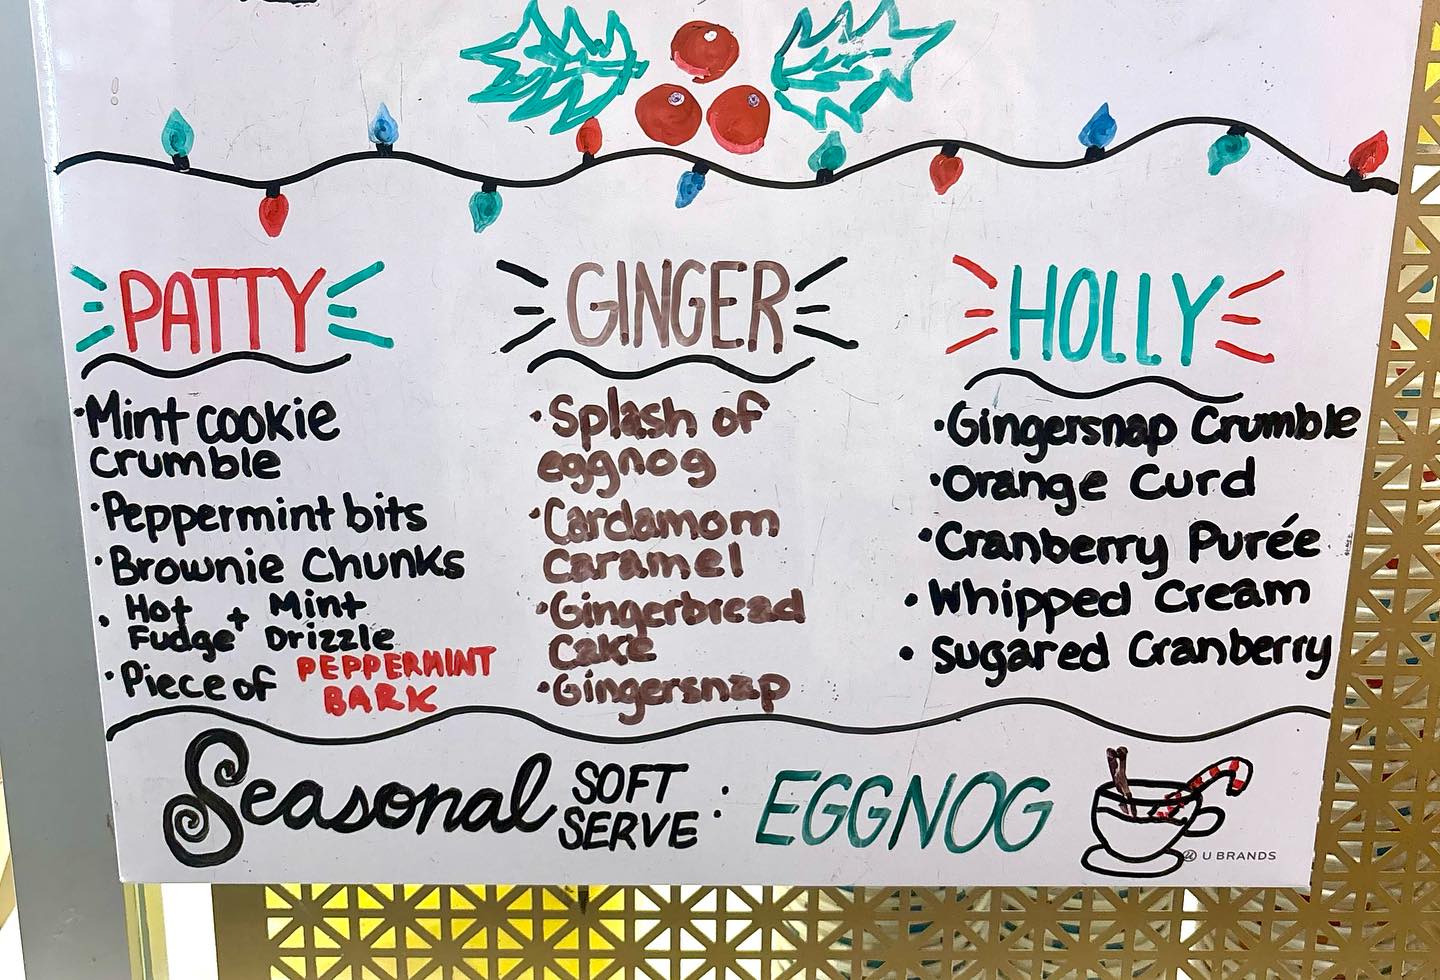 PATTY
• Mint cookie
crumble
• Peppermint bits
• Brownie Chunks
• Hot + Mint
Fudge Drizzle
• Piece of PEPPERMINT
BARK
GINGER
• Splash of
eggnog
• Cardamom
caramel
• Gingerbread
Cake
• Gingersnap
HOLLY
• Gingersnap Crumble
• Orange Curd
• Cranberry Purée
• Whipped Cream
• Sugared Cranberry
Seasonal SOFT
SERVE : EGGNOG
U BRANDS